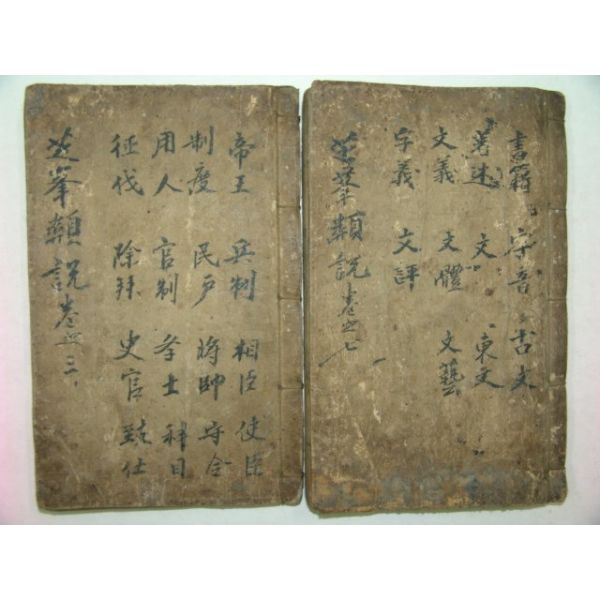 帝王 兵制 相臣 使臣
制度 民戶 將帥 守令
用人 官制 斈士 科目
征伐 除拜 史官 致仕
芝峯類說 卷之三
書籍 字音 古文
著述 文 東文
文義 文體 文藝
字義 文評
芝峯類說 卷之七